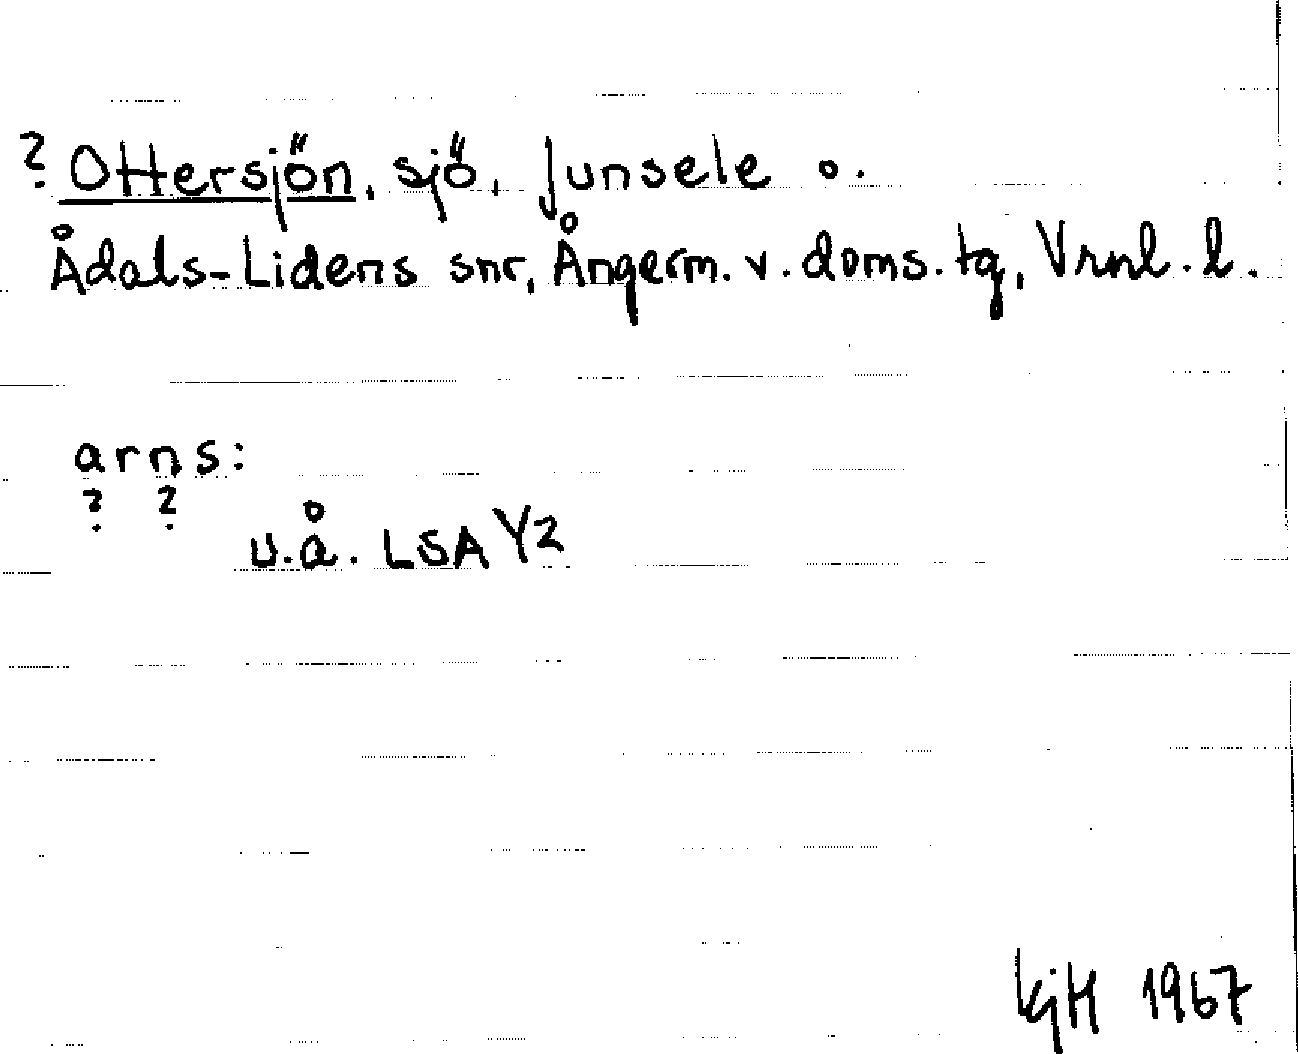 ? Ottersjön, sjö, Junsele o.
Ådals-Lidens snr, Ångerm. v. doms. tg, Vrnl. l.
arns:
? ?
u.å. LSA Y2
KjH 1967